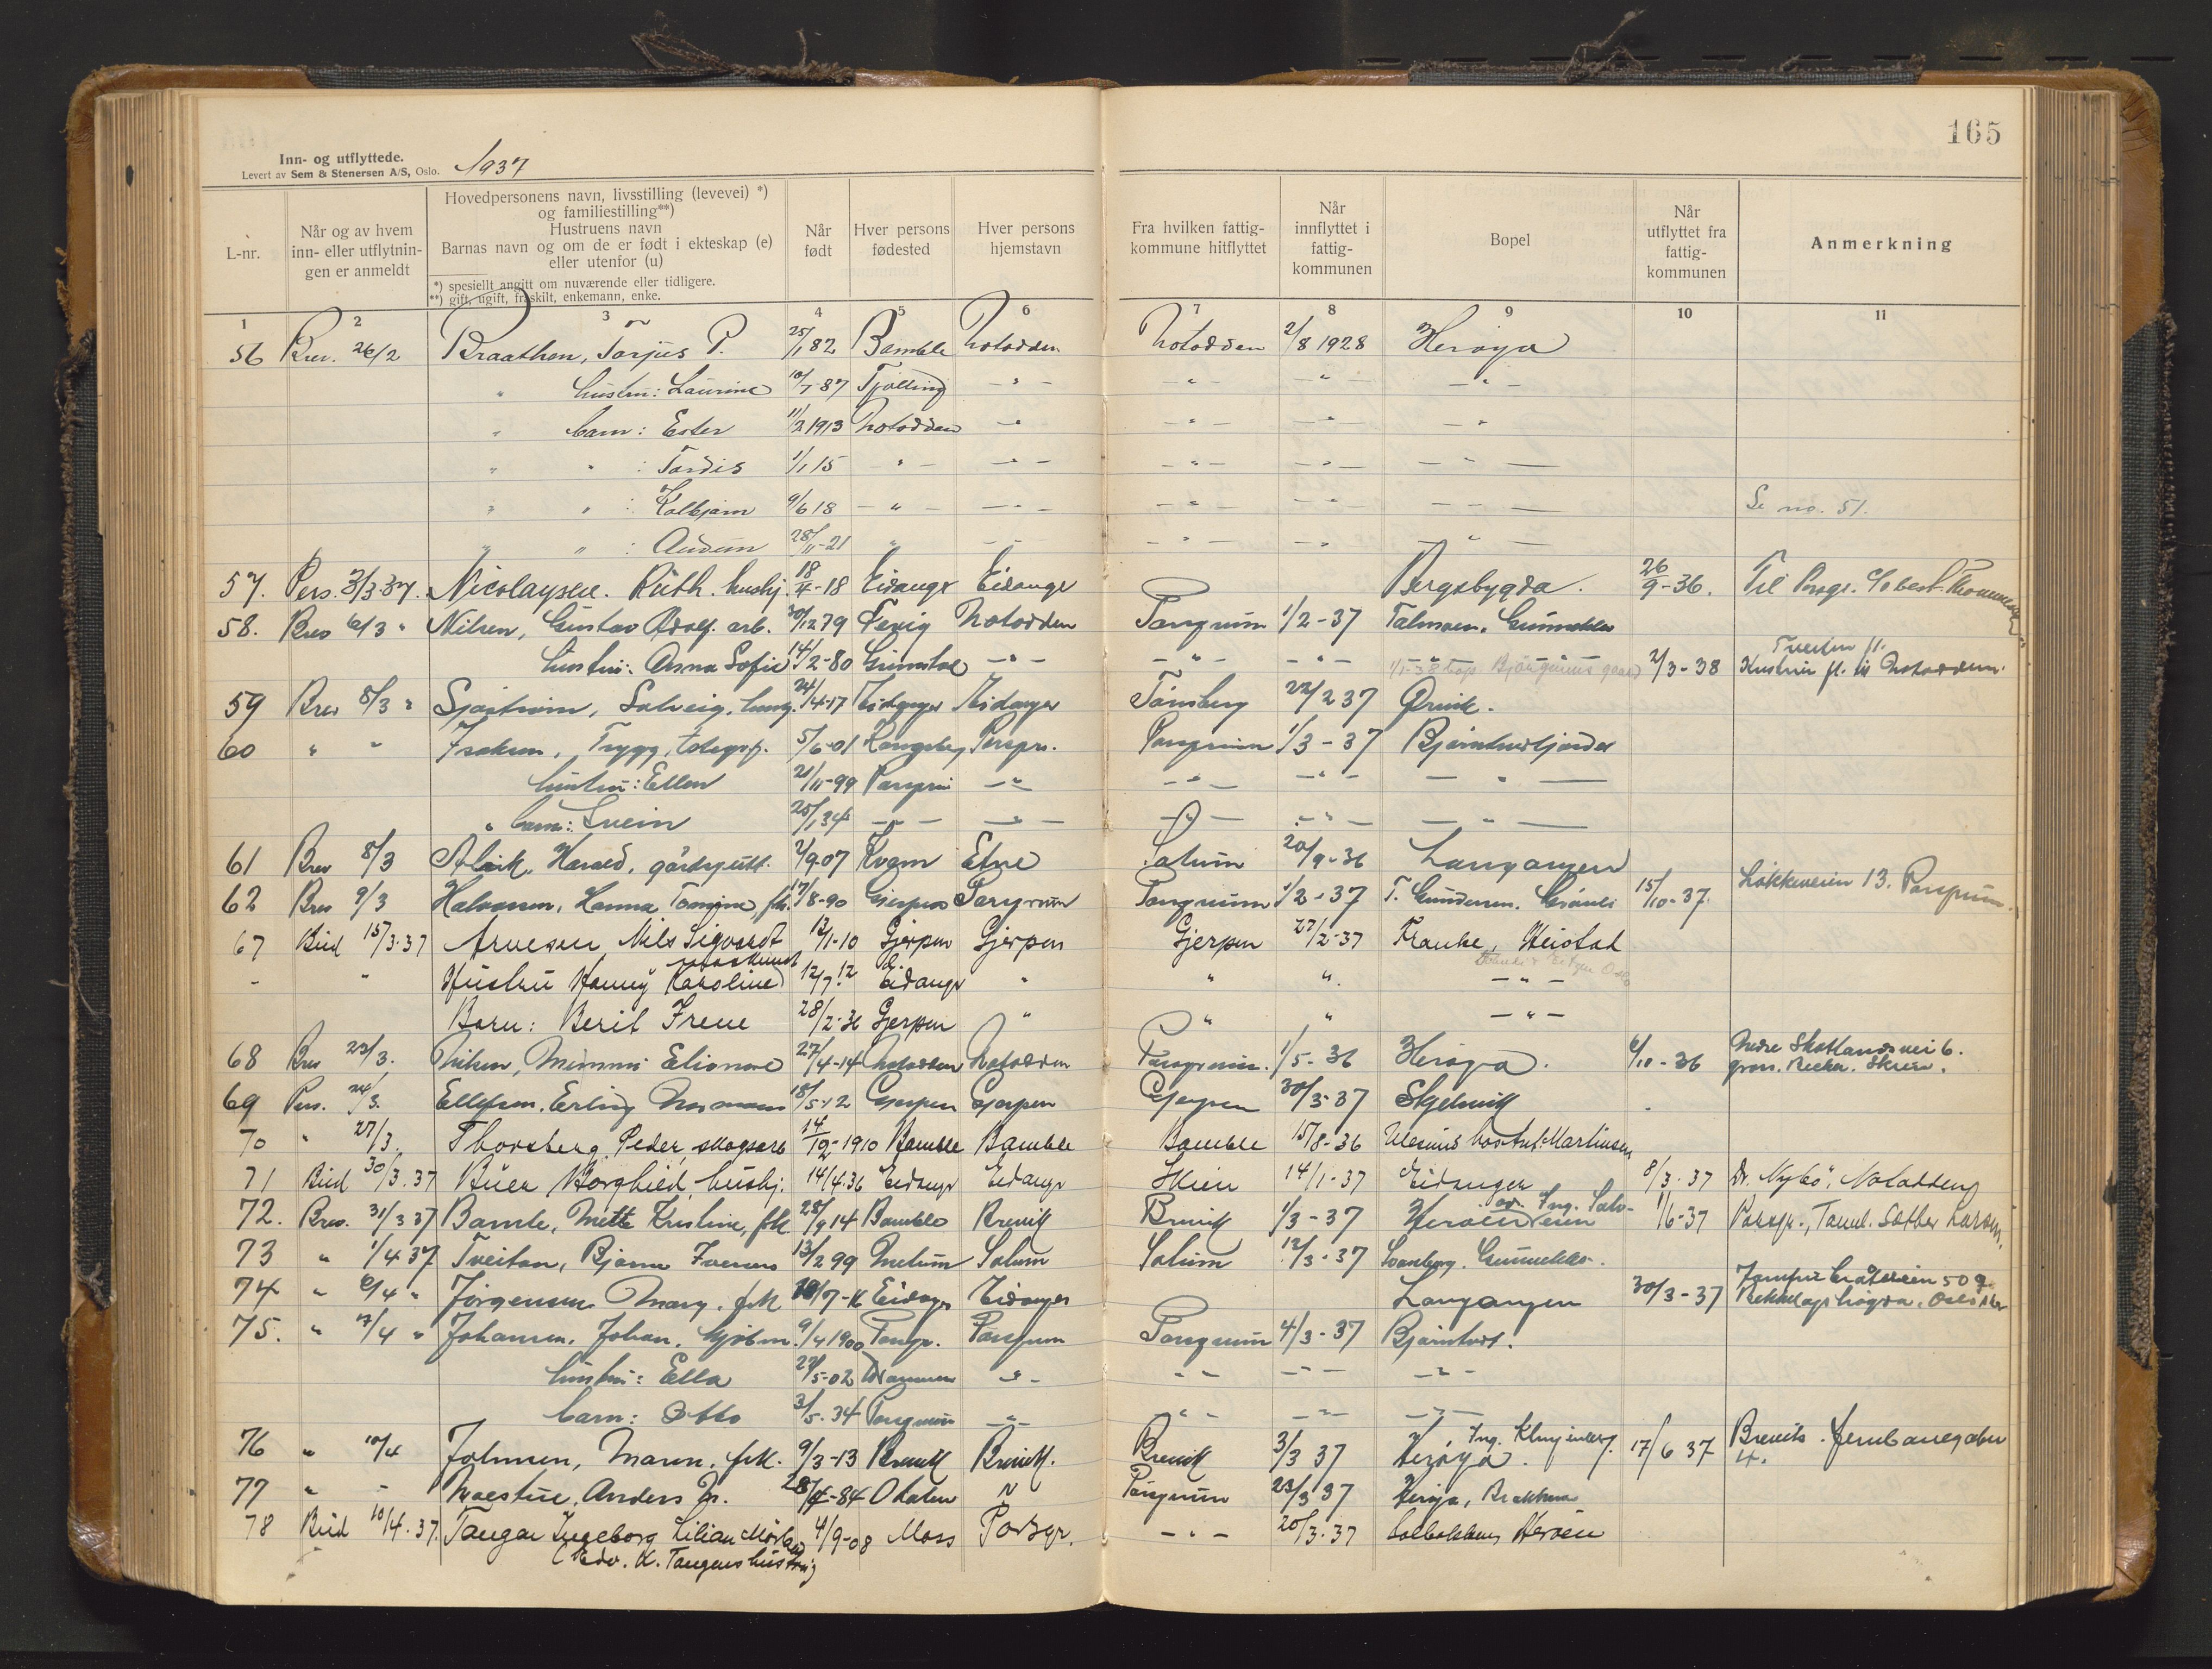 165
Inn- og utflyttede.
Levert av Sem & Stenersen A/S, Oslo. 1937
L-nr.
Når og av hvem inn- eller utflytnin-gen er anmeldt
Hovedpersonens navn, livsstilling (levevei) *)
og familiestilling**)
Hustruens navn
Barnas navn og om de er født i ekteskap (e)
eller utenfor (u)
*) spesiellt angitt om nuværende eller tidligere.
**) gift, ugift, fraskilt, enkemann, enke.
Når født
Hver persons fødested
Hver persons hjemstavn
Fra hvilken fattig-kommune hitflyttet
Når innflyttet i fattig-kommunen
Bopel
Når utflyttet fra fattig-kommunen
Anmerkning
1 2 3 4 5 6 7 8 9 10 11
56 Brev. 26/2 Braathen, Torjus P. 25/1 82 Bamble Notodden Notodden 2/8 1928 Herøya
" hustru: Laurine 10/7-87 Tjølling -"- -"- -"- -"-
" barn: Ester 11/2 1913 Notodden -"- -"- -"- -"-
" " : Tordis 1/1 15 -"- -"- -"- -"- -"-
" " : Kolbjørn 9/6 18 -"- -"- -"- -"- -"- Se no. 51.
" " : Audun 28/11-21 " -"- -"- -"- -"-
57. Pers. 2/3.37. Nicolaysen. Ruth. hushj. 18/4-18 Eidanger Eidanger Bergsbygda. 26/9-36. Til Porsgr.
58. Brev 6/3 " Nilsen, Gustav Adolf. arb. 30/12 79 Fevig Notodden Porsgrunn 1/2-37 Talmoen, Gunnekleiv
hustru: Anna Sofie 14/2-80 Grimstad -"- -"- -"- 2/3-38 Hustru fl. til Notodden.
59 Brev 8/3 " Sjøstrøm, Solveig, hushj. 24/4-17 Eidanger Eidanger Tønsberg 22/2 37 Ørvik.
60 " " Isaksen, Trygg, telegrf. 5/6-01 Kongsberg Porsgr. Porsgrunn 1/3-37 Bjørntvedtjordet
hustru: Ellen 21/11-99 Porsgrunn -"- -"- -"- -"-
" barn: Svein 25/1 34 -"- -"- -"- -"- -"-
61 Brev 8/3 Alvik, Harald, gårdsgutt. 2/9-07 Kvam Etne Solum 20/9-36 Langangen
62 Brev 9/3 Halvorsen, Hanna Tomine, frk. 17/8-90 Gjerpen Porsgrunn Porsgrunn 1/2-37 T. Gundersen. 15/10-37. Løkkeveien 13. Porsgrunn.
67 Bud 15/3.37 Arnesen Nils Sigvardt 13/1-10 Gjerpen Gjerpen Gjerpen 27/2-37 Franke, Heistad
- " Hustru Hanny Karoline 12/7.12 Eidanger " " " -"-
Barn: Beril Irene 28/2-36 Gjerpen " " " -"-
68 Brev 23/3. Nilsen, Mimmi Elionore 27/4-14 Notodden Notodden Porsgrunn. 1/5-36 Herøya. 6/10-36 Nedre Skotlandsvei 6.
69 Pers. 24/3. Ellefsen, Erling Normann 18/5-12 Gjerpen Gjerpen Gjerpen 30/3-37 Skjelvik
70 " 27/3. Thorsberg, Peder, skogsarb 14/12-1910 Bamble Bamble Bamble 15/8-36 Martinsen
71 Bud 30/3.37 Buer Borghild, hushj. 14/4.36 Eidanger Eidanger Skien 14/1-37 Eidanger 8/3.37 Dr. Nybø, Notodden
72. Brev. 31/3 37 Bamle, Mette Kristine, frk 28/9 14 Bamble Brevik Brevik 1/3-37 1/6-37 Porsgr., Larsen.
73 " 1/4 37 Tveitan, Bjarne 13/2 99 Melum Solum Solum 12/3-37 Gunneklev.
74 " 6/4 " Jørgensen Mary, frk 10/7-16 Eidanger Eidanger Langangen 30/3-37
75. " 7/4 " Johansen, Johan, 9/4 1900 Porsgr. Porsgrunn Porsgrunn 4/3-37 Bjørntvedt.
hustru: Ella 27/5-02 Drammen -"- -"- -"- -"-
barn: Otto 3/5-34 Porsgrunn -"- -"- -"- -"-
76 " 10/4 Johnsen, Maren, frk. 9/3-13 Brevik Brevik. Brevik 3/3 37 Herøya. 17/6 37 Breviks Jernbanegaten 4.
77 " - Moestue, Anders 28/4-84 " Porsgrunn 23/3 37 Herøya,
78 Bud 10/4.37. Tangen Ingeborg Lilian 4/9-08 Moss Porsgr. -"- 20/3-37 Solbakken, Herøen
(Edv. K. Tangens hustru)